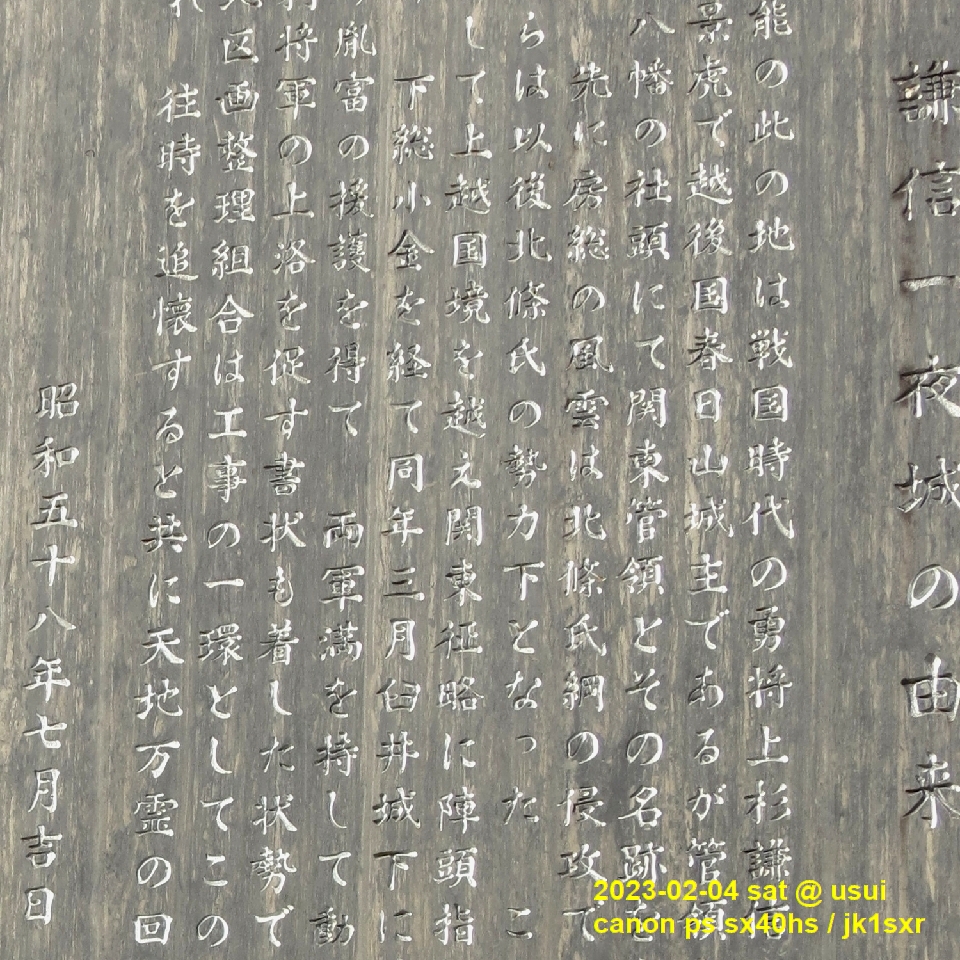 謙信一夜城の由来
能の此の地は戦国時代の勇将上杉謙信
景虎で越後国春日山城主であるが管領
八幡の社頭にて関東管領とその名跡を
先に房総の風雲は北條氏綱の侵攻で
らは以後北條氏の勢力下となった こ
して上越国境を越え関東征略に陣頭指
下総小金を経て同年三月臼井城下に
胤富の援護を得て 両軍満を持して動
将軍の上洛を促す書状も着した状勢で
区画整理組合は工事の一環としてこの
れ 往時を追懐すると共に天地万霊の回
昭和五十八年七月吉日
2023-02-04 sat @ usui
canon ps sx40hs / jk1sxr